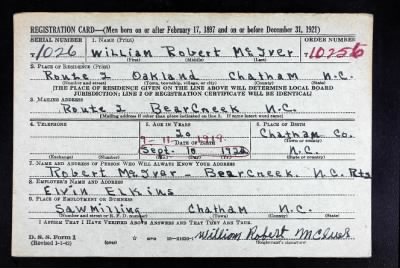 REGISTRATION CARD—(Men born on or after February 17, 1897 and on or before December 31, 1921)
SERIAL NUMBER 1. NAME (Print) ORDER NUMBER
T 1026 William Robert McIver T 10256
(First) (Middle) (Last)
2. PLACE OF RESIDENCE (Print)
Route 2 Oakland Chatham N.C.
(Number and street) (Town, township, village, or city) (County) (State)
[THE PLACE OF RESIDENCE GIVEN ON THE LINE ABOVE WILL DETERMINE LOCAL BOARD
JURISDICTION; LINE 2 OF REGISTRATION CERTIFICATE WILL BE IDENTICAL]
3. MAILING ADDRESS
Route 2 BearCreek N.C.
[Mailing address if other than place indicated on line 2. If same insert word same]
4. TELEPHONE 5. AGE IN YEARS 6. PLACE OF BIRTH
20 Chatham Co.
DATE OF BIRTH (Town or county)
1919
Sept. 10 N.C.
(Exchange) (Number) (Mo.) (Day) (Yr.) (State or country)
7. NAME AND ADDRESS OF PERSON WHO WILL ALWAYS KNOW YOUR ADDRESS
Robert McIver BearCreek N.C.
8. EMPLOYER'S NAME AND ADDRESS
Elvin Elkins
9. PLACE OF EMPLOYMENT OR BUSINESS
Sawmilling Chatham N.C.
(Number and street or R. F. D. number) (Town) (County) (State)
I AFFIRM THAT I HAVE VERIFIED ABOVE ANSWERS AND THAT THEY ARE TRUE.
D. S. S. Form 1
(Revised 1-1-42) (over) William Robert McIver
(Registrant's signature)